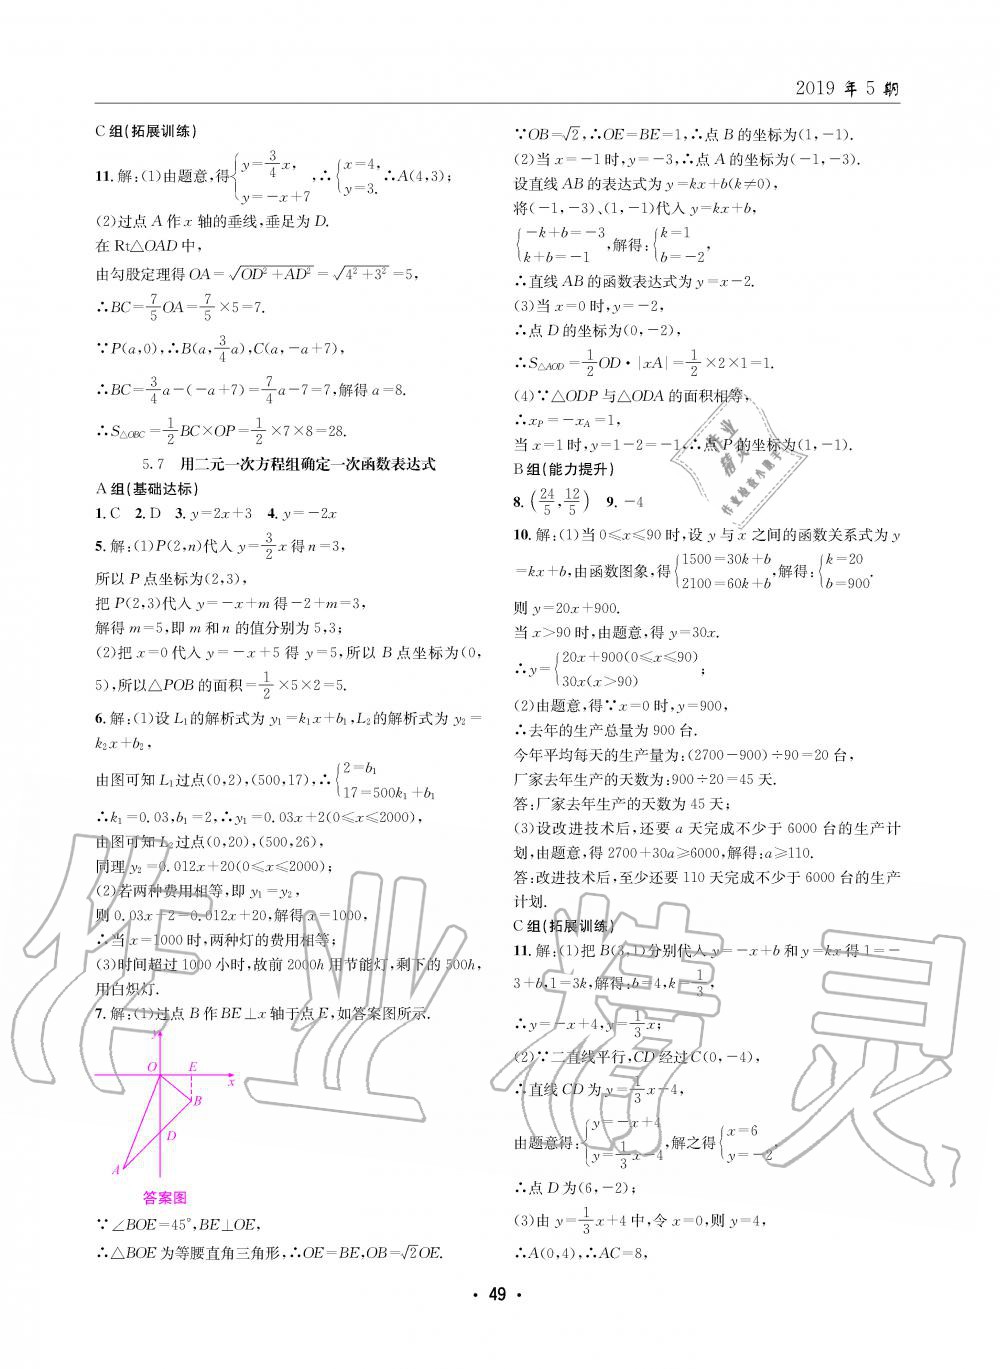 2019 年 5 期
C 组(拓展训练)
11. 解:(1)由题意,得{y=3/4x, y=-x+7 ,∴{x=4, y=3. ∴A(4,3);
(2)过点 A 作 x 轴的垂线,垂足为 D.
在 Rt△OAD 中,
由勾股定理得 OA=√(OD²+AD²)=√(4²+3²)=5,
∴BC=7/5OA=7/5×5=7.
∵P(a,0),∴B(a,3/4a),C(a,-a+7),
∴BC=3/4a-(-a+7)=7/4a-7=7,解得 a=8.
∴S△OBC=1/2BC×OP=1/2×7×8=28.
5.7 用二元一次方程组确定一次函数表达式
A 组(基础达标)
1. C 2. D 3. y=2x+3 4. y=-2x
5. 解:(1)P(2,n)代入 y=3/2x 得 n=3,
所以 P 点坐标为(2,3),
把 P(2,3)代入 y=-x+m 得-2+m=3,
解得 m=5,即 m 和 n 的值分别为 5,3;
(2)把 x=0 代入 y=-x+5 得 y=5,所以 B 点坐标为(0,
5),所以△POB 的面积=1/2×5×2=5.
6. 解:(1)设 L₁的解析式为 y₁=k₁x+b₁,L₂的解析式为 y₂=
k₂x+b₂,
由图可知 L₁过点(0,2),(500,17),∴{2=b₁ 17=500k₁+b₁
∴k₁=0.03,b₁=2,∴y₁=0.03x+2(0≤x≤2000),
由图可知 L₂过点(0,20),(500,26),
同理 y₂=0.012x+20(0≤x≤2000);
(2)若两种费用相等,即 y₁=y₂,
则 0.03x+2=0.012x+20,解得 x=1000,
∴当 x=1000 时,两种灯的费用相等;
(3)时间超过 1000 小时,故前 2000h 用节能灯,剩下的 500h,
用白炽灯.
7. 解:(1)过点 B 作 BE⊥x 轴于点 E,如答案图所示.
y
O E
x
B
D
A
答案图
∵∠BOE=45°,BE⊥OE,
∴△BOE 为等腰直角三角形,∴OE=BE,OB=√2OE.
∵OB=√2,∴OE=BE=1,∴点 B 的坐标为(1,-1).
(2)当 x=-1 时,y=-3,∴点 A 的坐标为(-1,-3).
设直线 AB 的表达式为 y=kx+b(k≠0),
将(-1,-3)、(1,-1)代入 y=kx+b,
{-k+b=-3 k+b=-1 ,解得:{k=1 b=-2 ,
∴直线 AB 的函数表达式为 y=x-2.
(3)当 x=0 时,y=-2,
∴点 D 的坐标为(0,-2),
∴S△AOD=1/2OD·|xA|=1/2×2×1=1.
(4)∵△ODP 与△ODA 的面积相等,
∴xP=-xA=1,
当 x=1 时,y=1-2=-1,∴点 P 的坐标为(1,-1).
B 组(能力提升)
8. (24/5,12/5) 9. -4
10. 解:(1)当 0≤x≤90 时,设 y 与 x 之间的函数关系式为 y
=kx+b,由函数图象,得{1500=30k+b 2100=60k+b ,解得:{k=20 b=900 .
则 y=20x+900.
当 x>90 时,由题意,得 y=30x.
∴y={20x+900(0≤x≤90) 30x(x>90) ;
(2)由题意,得∵x=0 时,y=900,
∴去年的生产总量为 900 台.
今年平均每天的生产量为:(2700-900)÷90=20 台,
厂家去年生产的天数为:900÷20=45 天.
答:厂家去年生产的天数为 45 天;
(3)设改进技术后,还要 a 天完成不少于 6000 台的生产计
划,由题意,得 2700+30a≥6000,解得:a≥110.
答:改进技术后,至少还要 110 天完成不少于 6000 台的生产
计划.
C 组(拓展训练)
11. 解:(1)把 B(3,1)分别代入 y=-x+b 和 y=kx 得 1=-
3+b,1=3k,解得:b=4,k=1/3,
∴y=-x+4,y=1/3x;
(2)∵二直线平行,CD 经过 C(0,-4),
∴直线 CD 为 y=1/3x-4,
由题意得:{y=-x+4 y=1/3x-4 ,解之得{x=6 y=-2 ,
∴点 D 为(6,-2);
(3)由 y=1/3x+4 中,令 x=0,则 y=4,
∴A(0,4),∴AC=8,
· 49 ·
作业精灵